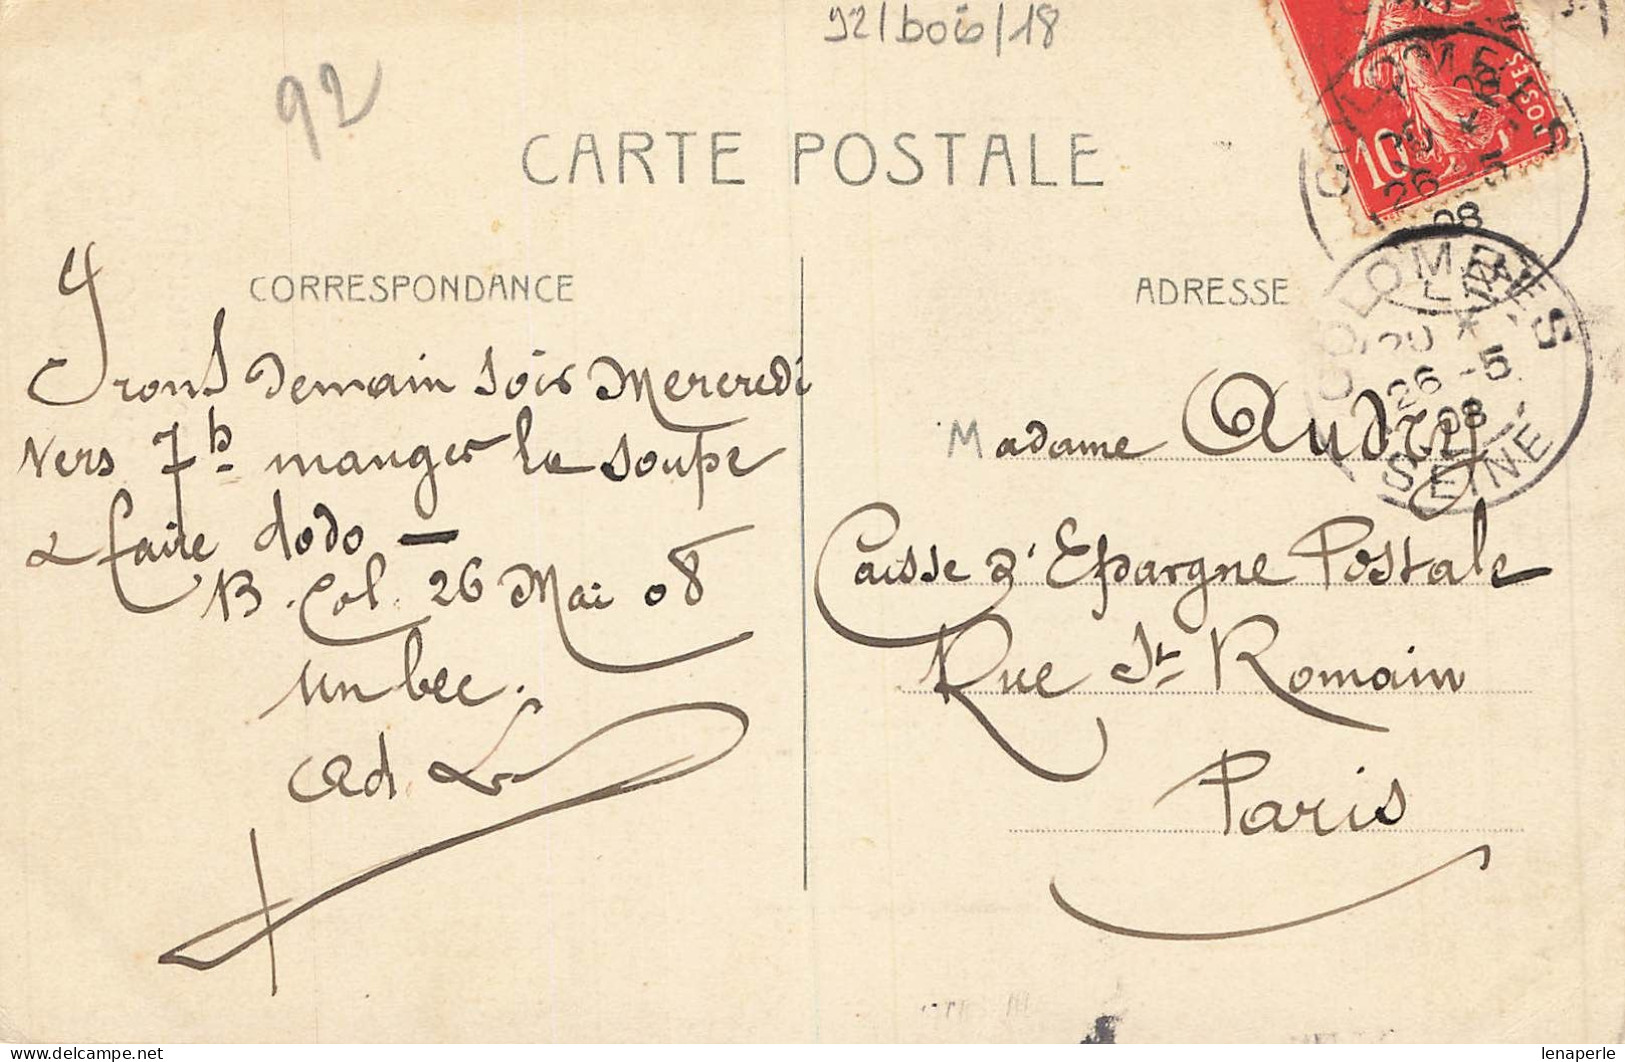 92/bois/18
92
CARTE POSTALE
CORRESPONDANCE
Irons demain soir Mercredi
vers 7h manger la soupe
& faire dodo —
B. Col. 26 Mai 08
un bec.
Ad L
ADRESSE
Madame Audry
Caisse d'Epargne Postale
Rue St Romain
Paris
10
POSTES
COLOMBES
20 *
26 -5
08
COLOMBES
20 *
26 -5
08
SEINE
lenaperle